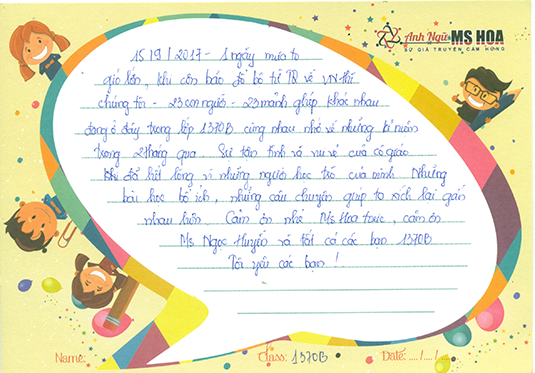 Anh Ngữ MS HOA
SỨ GIẢ TRUYỀN CẢM HỨNG
15/9/2017 - 1 ngày mưa to
gió lớn, khi cơn bão đổ bộ từ TQ về VN thì
chúng tôi - 23 con người - 23 mảnh ghép khác nhau
đang ở đây trong lớp 1370B cùng nhau nhớ về những kỉ niệm
trong 2 tháng qua. Sự tận tình và vui vẻ của cô giáo
khi đã hết lòng vì những người học trò của mình. Những
bài học bổ ích, những câu chuyện giúp ta xích lại gần
nhau hơn. Cảm ơn nhé Ms Hoa toeic, cảm ơn
Ms Ngọc Huyền và tất cả các bạn 1370B
Tôi yêu các bạn !
Name:
Class: 1370B
Date: ..../..../....